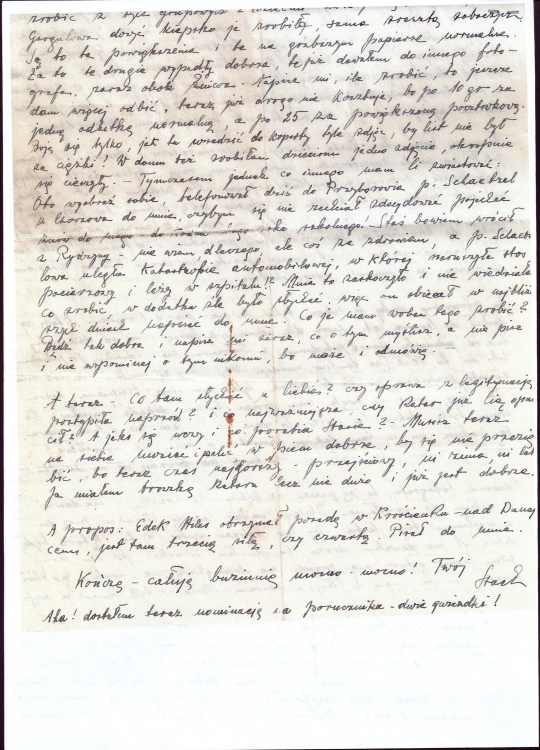 zrobić z tyc grupowych z
Gargulowa dosyć kiepsko je zrobiła, sama zresztą zobaczysz.
Są bo te powiększenia i te na grubszym papierze normalne.
Za to te drugie wypadły dobrze, te już dawałem do innego foto-
grafa, zaraz obok Żnicza. Napisz mi, ile zrobić, to jeszcze
dam więcej odbić, teraz już drogo nie kosztuje, bo po 10 gr za
jedną odbitkę normalną, a po 25 za powiększoną pocztówkową.
Boję się tylko, jak tu wsadzić do koperty tyle zdjęć, by list nie był
za ciężki! W domu też zrobiłem dzieciom jedno zdjęcie, okropnie
się cieszyły. - Tymczasem jednak co innego mam Ci zwiastować:
Oto wyobraź sobie, telefonował dziś do Przyborowia p. Schaetzel
z Chorzowa do mnie, czybym się nie zechciał zdecydować pojechać
znów do niego do końca roku szkolnego! Staś bowiem wrócił
z Rydzyny - nie wiem dlaczego, ale coś ze zdrowiem, a p. Schaetz
lowa uległa katastrofie automobilowej, w której naruszyła stos
pacierzowy i leży w szpitalu!? Mnie to zaskoczyło i nie wiedziałem
co zrobić, w dodatku źle było słychać, więc on obiecał w najbliż
szych dniach napisać do mnie. Co ja mam wobec tego zrobić?
Bądź tak dobra i napisz mi zaraz, co o tym myślisz, a nie pisz
i nie wspominaj o tym nikomu, bo może i odmówię.
A teraz - Co tam słychać u Ciebie? czy sprawa z legitymacją
postąpiła naprzód? i co najważniejsze, czy Katar już Cię opuś
cił? A jak się wozy i co porabia Stasia? - Musisz teraz
na siebie uważać i palić w piecu dobrze, by się nie przezię
bić, bo teraz czas najgorszy - przejściowy, ni zima ni lat
Ja miałem troszkę kataru lecz nie dużo i już jest dobrze.
A propos: Edek Miles otrzymał posadę w Krościenku-nad Dunaj
cem, jest tam trzecią siłą, czy czwartą. Pisał do mnie.
Kończę - całuję buziunię mocno-mocno! Twój
Stach
Aha! dostałem teraz nominację na porucznika - dwie gwiazdki!